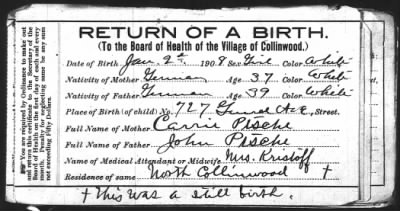 RETURN OF A BIRTH.
(To the Board of Health of the Village of Collinwood.)
Date of Birth Jan. 2nd 1908 Sex Girl Color White
Nativity of Mother German Age 37 Color White
Nativity of Father German Age 39 Color White
Place of Birth (of child) No. 727 Ave, Street.
Full Name of Mother Carrie Pesche
Full Name of Father John Pesche
Name of Medical Attendant or Midwife Mrs. Kristoff
Residence of same North Collinwood †
† This was a still birth.
You are required by Ordinance to make out
and return this certificate to the Secretary of the
Board of Health on the first day of each and every
month. Penalty for neglecting same be any sum
not exceeding Fifty Dollars.